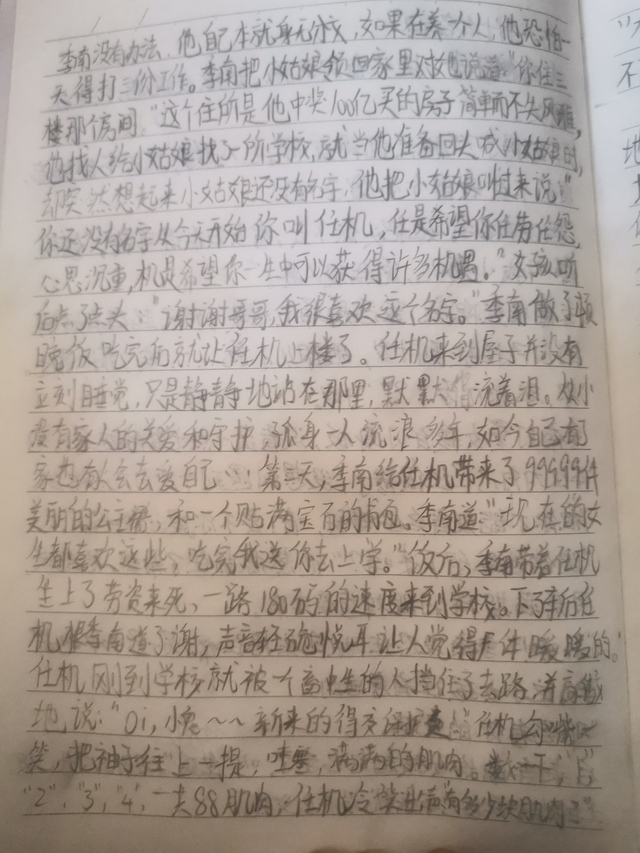 李南没有办法，他自己本就身无分文，如果在养一个人，他恐怕一
天得打三份工作。李南把小姑娘领回家里对她说道："你住三
楼那个房间"这个住所是他中奖100亿买的房子简单而不失风雅，
他找人给小姑娘找了一所学校，就当他准备回头喊小姑娘时，
却突然想起来小姑娘还没有名字，他把小姑娘叫过来说："
你还没有名字从今天开始你叫任机，任是希望你任劳任怨，
心思沉重，机是希望你一生中可以获得许多机遇。"女孩听
后点了点头："谢谢哥哥，我很喜欢这个名字。"李南做了顿
晚饭吃完后就让任机上楼了。任机来到屋子并没有
立刻睡觉，只是静静地站在那里，默默 流着泪。从小
没有家人的关爱和守护，孤身一人流浪多年，如今自己有了
家也有人会去爱自己…第二天，李南给任机带来了99999件
美丽的公主裙，和一个贴满宝石的书包。李南道："现在的女
生都喜欢这些，吃完我送你去上学。"饭后，李南带着任机
坐上了劳资来死，一路180码的速度来到学校。下了车后任
机跟李南道了谢，声音轻 悦耳让人觉得 体暖暖的。
任机刚到学校就被一个高中生的人挡住了去路，并高傲
地说："Oi，小鬼~~新来的得交保护费！"任机 嘴
笑，把袖子往上一提，哇塞，满满的肌肉。数一下，"1"，
"2"，"3"，"4"，一共88肌肉，任机冷笑 声"有多少块肌肉